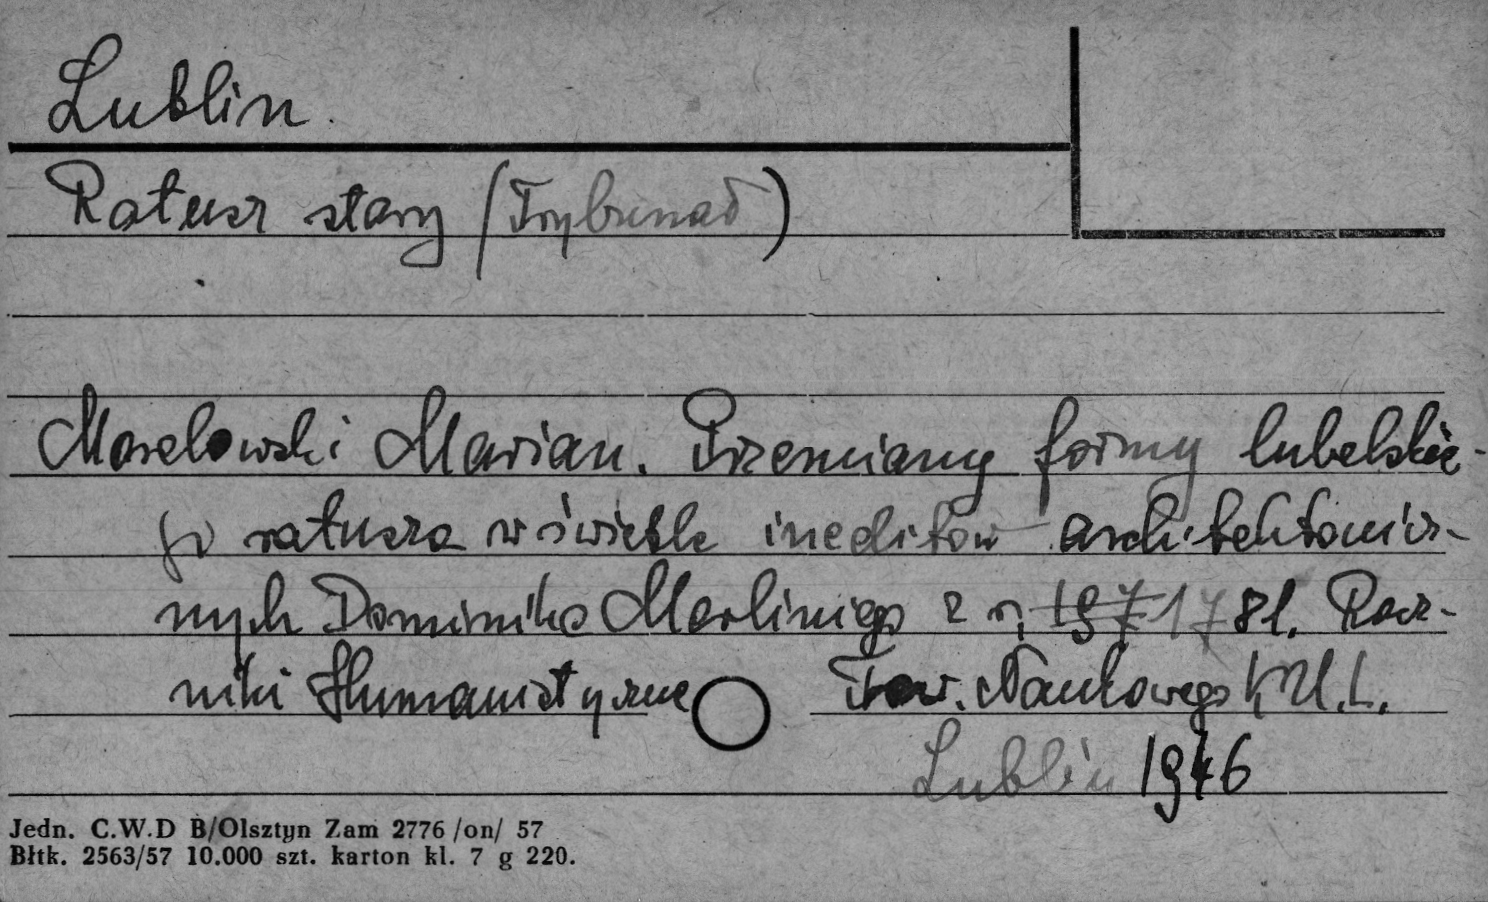 Lublin.
Ratusz stary (Trybunał)
Morelowski Marian. Przemiany formy lubelskie-
go ratusza w świetle ineditów architektonicz-
nych Dominika Merliniego z r. 197 1781. Rocz-
niki Humanistyczne Tow. Naukowego K.U.L.
Lublin 1946
Jedn. C.W.D B/Olsztyn Zam 2776 /on/ 57
Błtk. 2563/57 10.000 szt. karton kl. 7 g 220.